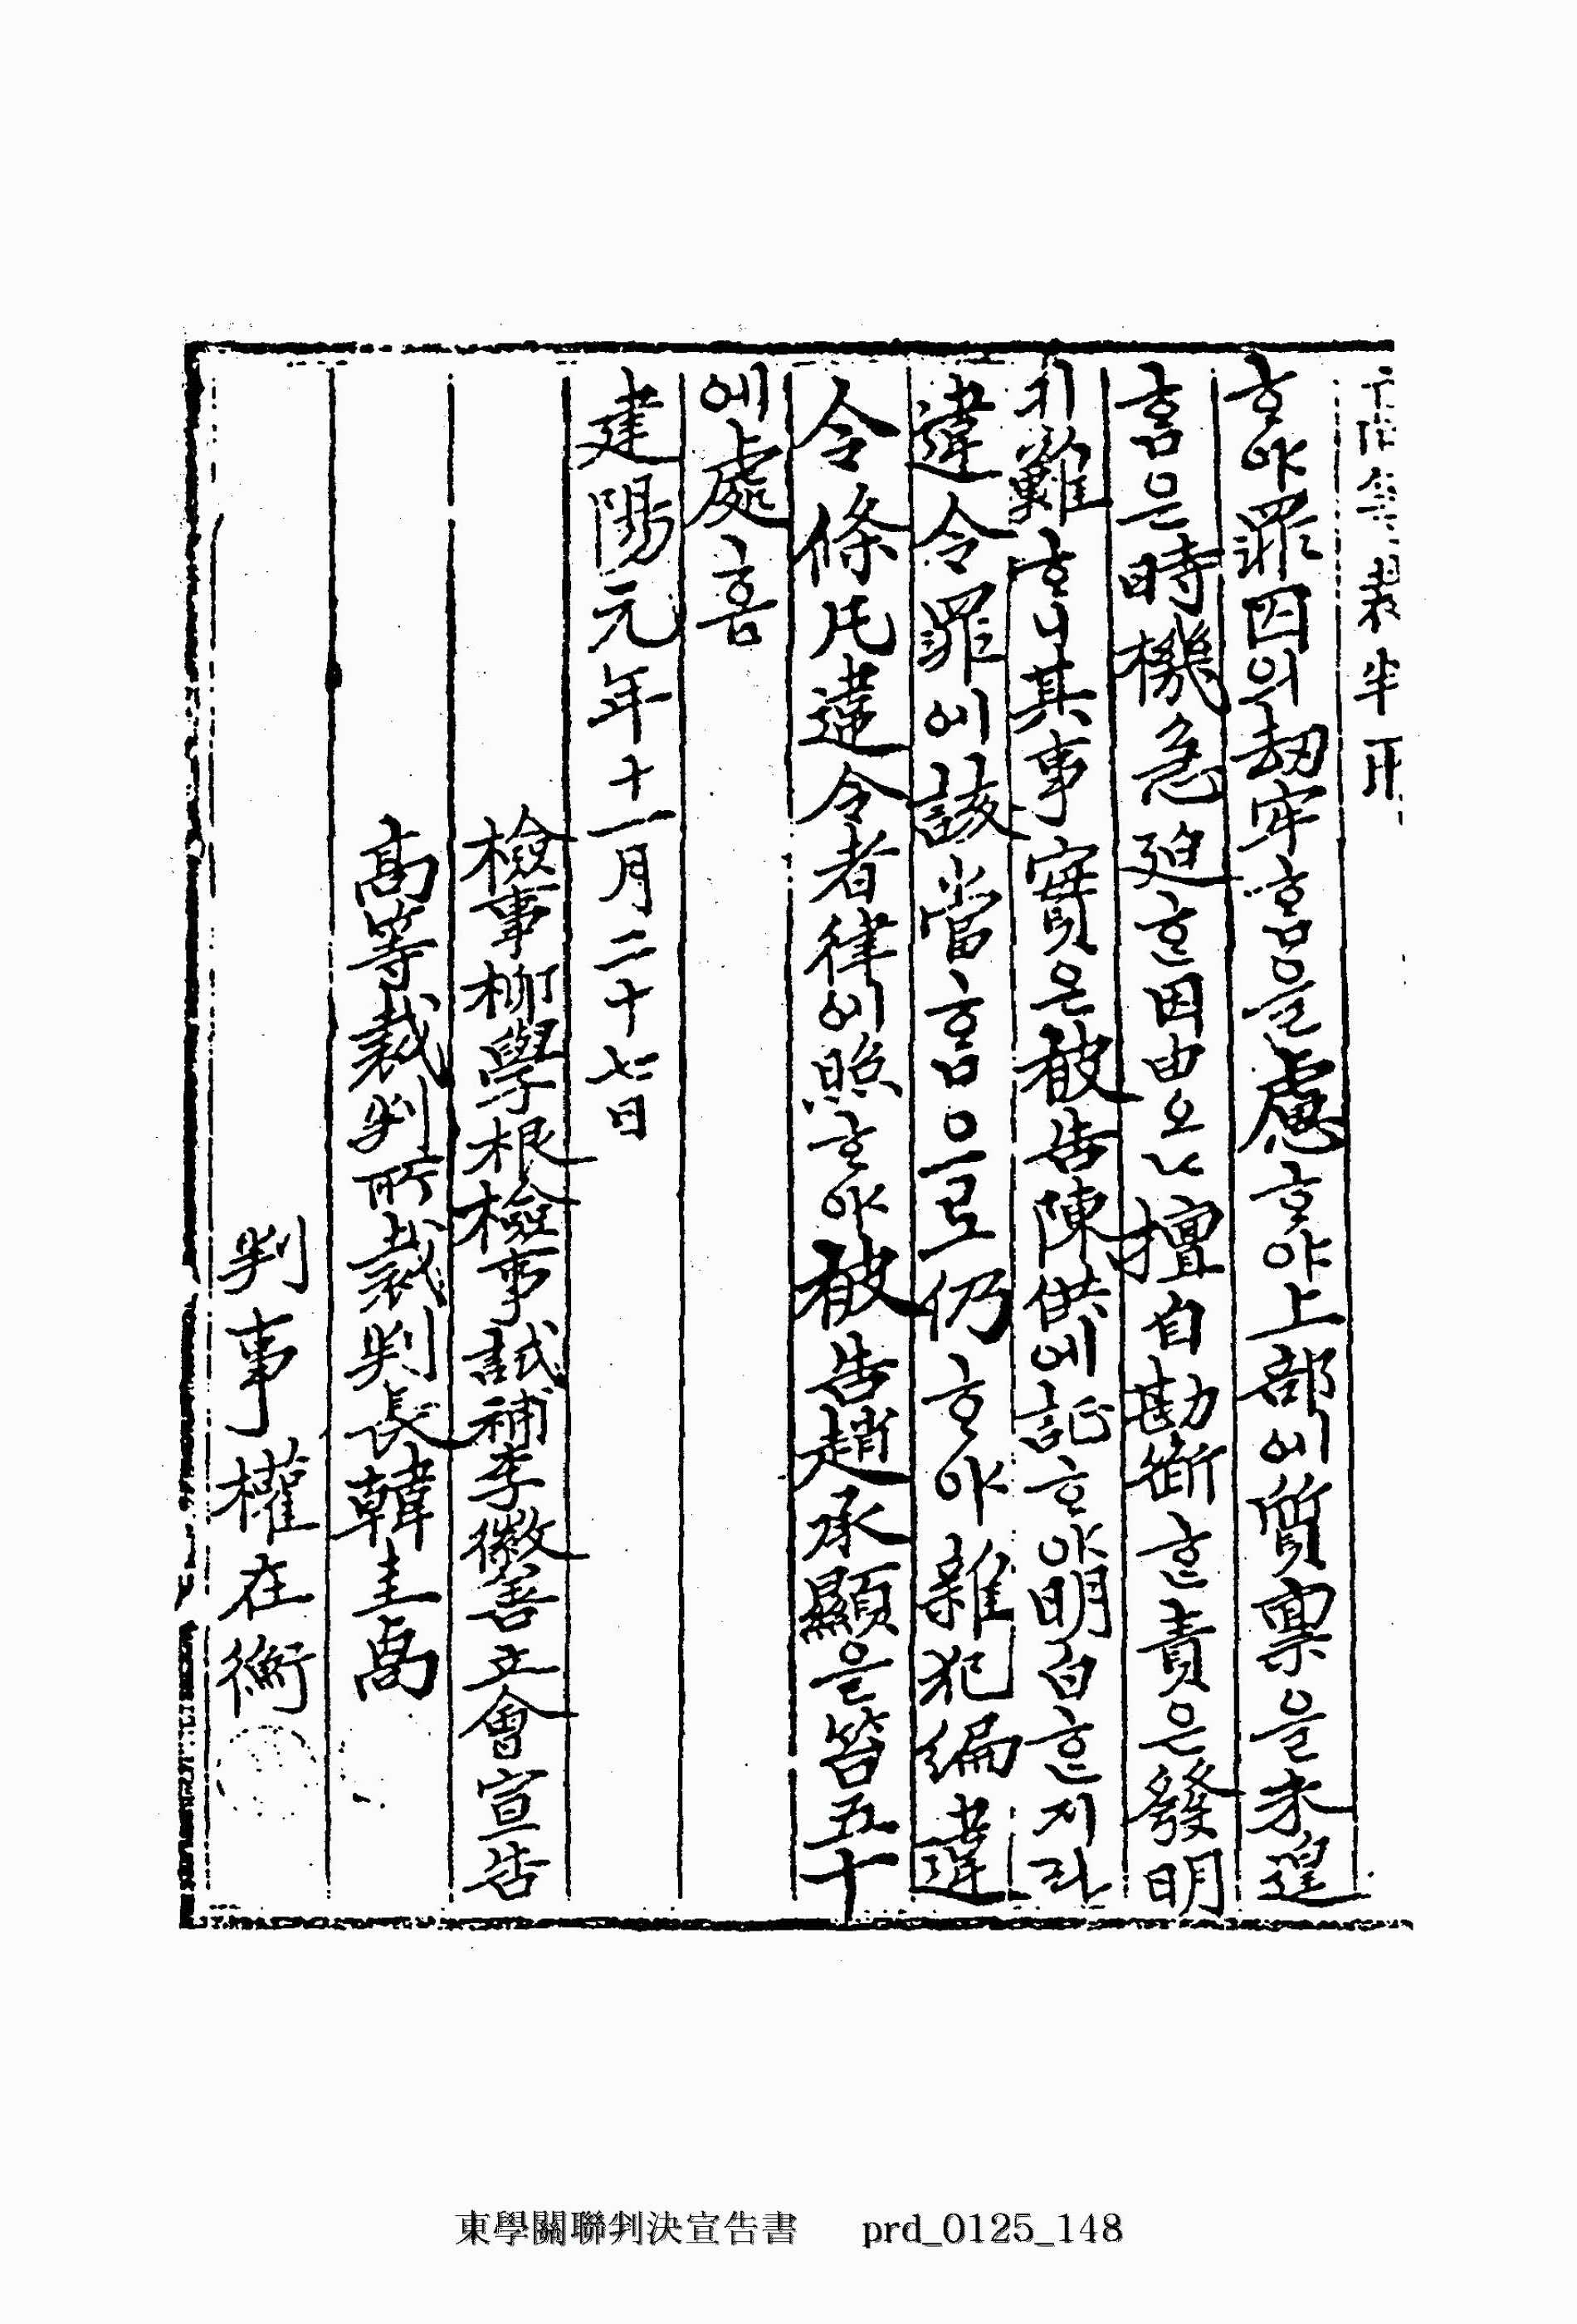 ᄒᆞ야罪囚의刼牢ᄒᆞᆷ을慮ᄒᆞ야上部에質稟을未遑
ᄒᆞᆷ은時機急廹ᄒᆞᆫ因由오나擅自勘斷ᄒᆞᆫ責은發明
키難ᄒᆞ니其事實은被告陳供에証ᄒᆞ야明白ᄒᆞᆫ지라
違令罪에該當ᄒᆞᆷ으로仍ᄒᆞ야雜犯編違
令條凡違令者律에照ᄒᆞ야被告趙承顯을笞五十
에處ᄒᆞᆷ
建陽元年十一月二十七日
檢事柳學根檢事試補李徽善立會宣告
高等裁判所裁判長韓圭卨
判事權在衡
東學關聯判決宣告書 prd_0125_148